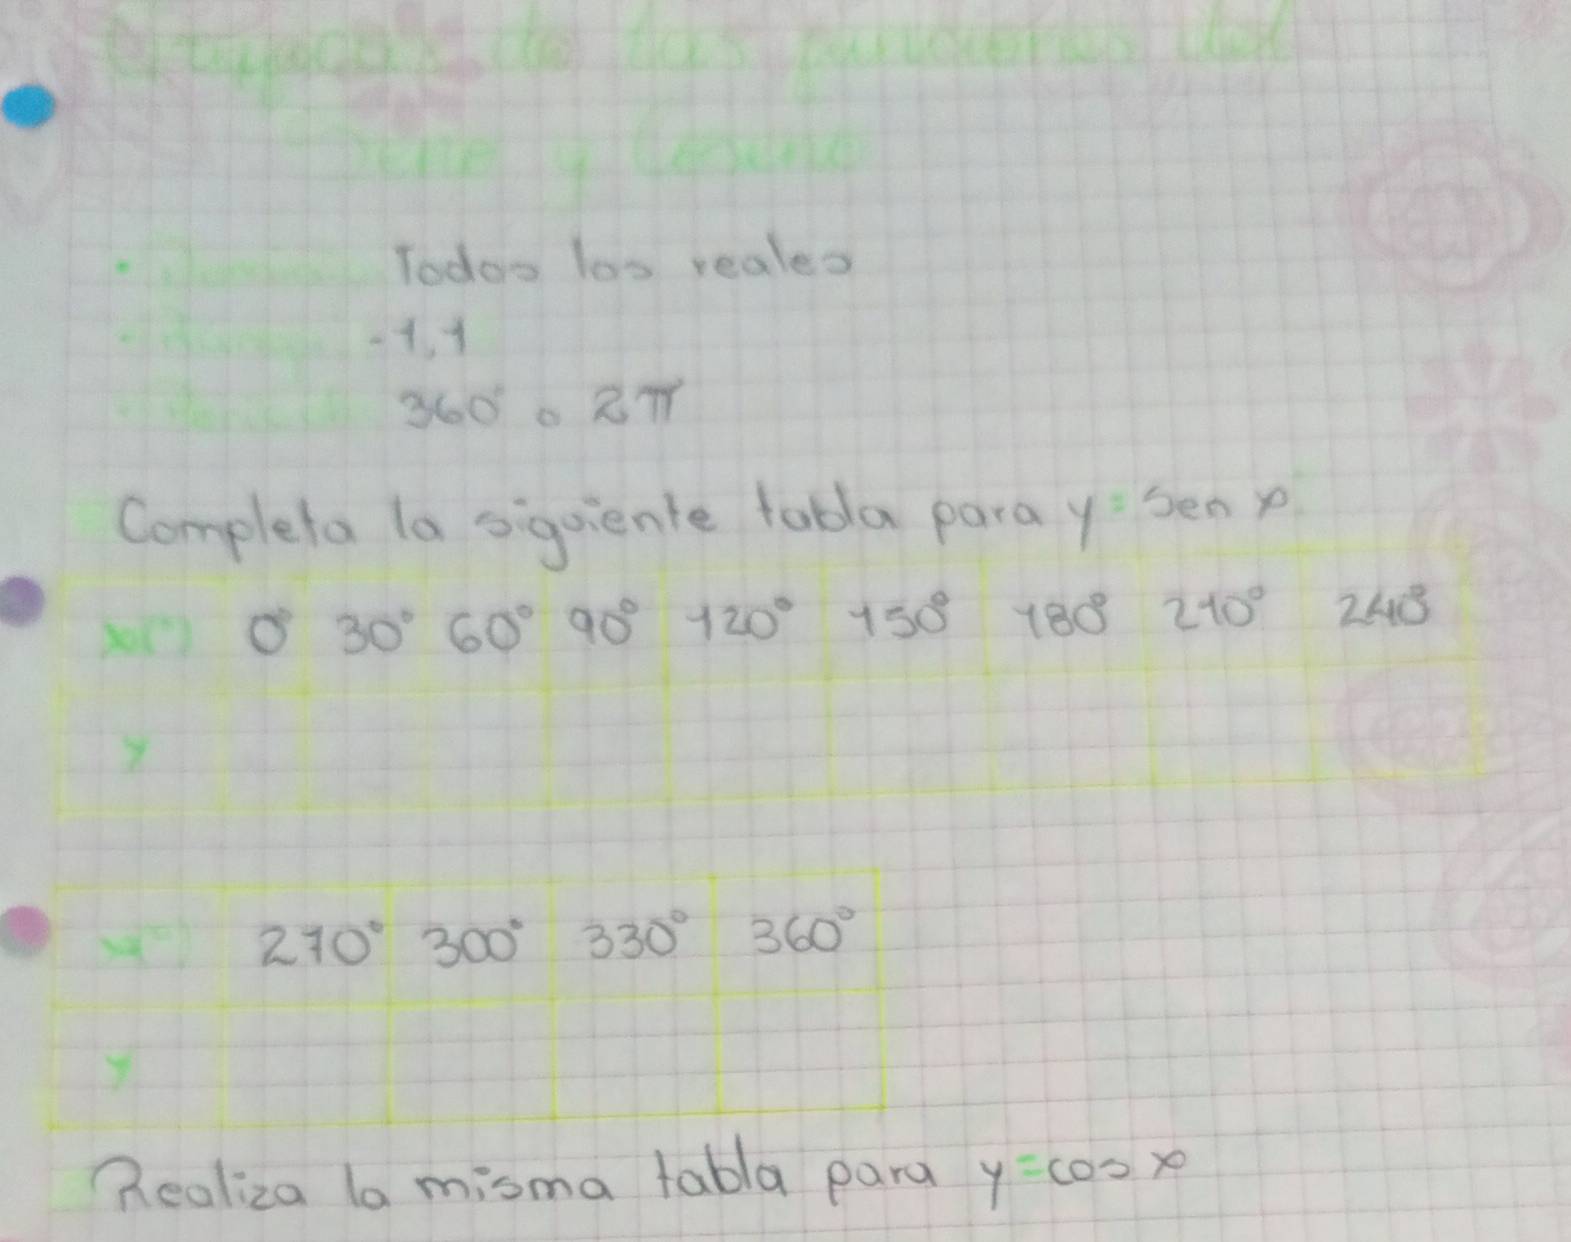 Graficas de las funciones del
Seno y Coseno
• Dominio Todos los reales
• Rango -1, 1
• Periodo 360° o 2π
Completa la siguiente tabla para y = Sen x
x(°) 0° 30° 60° 90° 120° 150° 180° 210° 240°
y
x(°) 270° 300° 330° 360°
y
Realiza la misma tabla para y = cos x